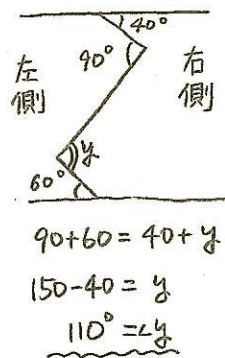 40°
90°
左側
右側
y
60°
90+60=40+y
150-40=y
110°=∠y